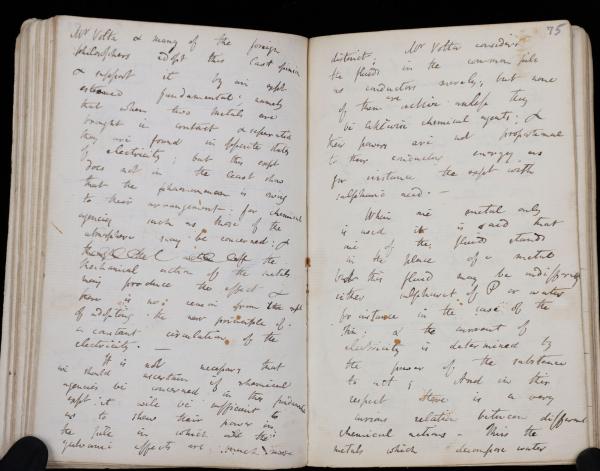 Mr Volta & many of the foreign
philosophers adopt this last opinion
& support it by an expt
esteemed fundamental; namely
that when two metals are
brought in contact & separated
they are found in opposite states
of electricity; but this expt
does not in the least show
that the phænomenon is owing
to their arrangement: for chemical
agencies such as those of the
atmosphere may be concerned: &
the
mechanical action of the metals
may produce the effect &
there is no reason from this expt
of adopting the new principle of
a constant circulation of the
electricity. —
It is not necessary that
we should ascertain if chemical
agencies be concerned in this fundamental
expt: it will be sufficient to
us to shew their power in
the pile in which all the
galvanic effects are much more
75
district; Mr Volta considers
the fluids in the common pile
as conductors merely; but none
of them are active unless they
be likewise chemical agents; &
their powers are not proportional
to their conducting energy as
for instance the expt with
sulphuric acid. —
When one metal only
is used it is said that
one of the fluids stands
in the place of a metal
but this fluid may be indifferently
either sulphuret of P or water
for instance in the case of the
& the current of
electricity is determined by
the power of the substance
to act; And in this
respect there is a very
curious relation between different
chemical actions — Thus the
metals which decompose water